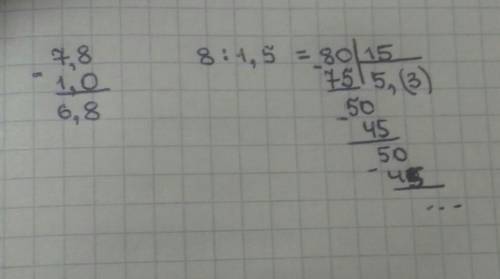 7,8
- 1,0
6,8
8 : 1,5 = 80 | 15
- 75 | 5,(3)
- 50
45
50
- 45
...